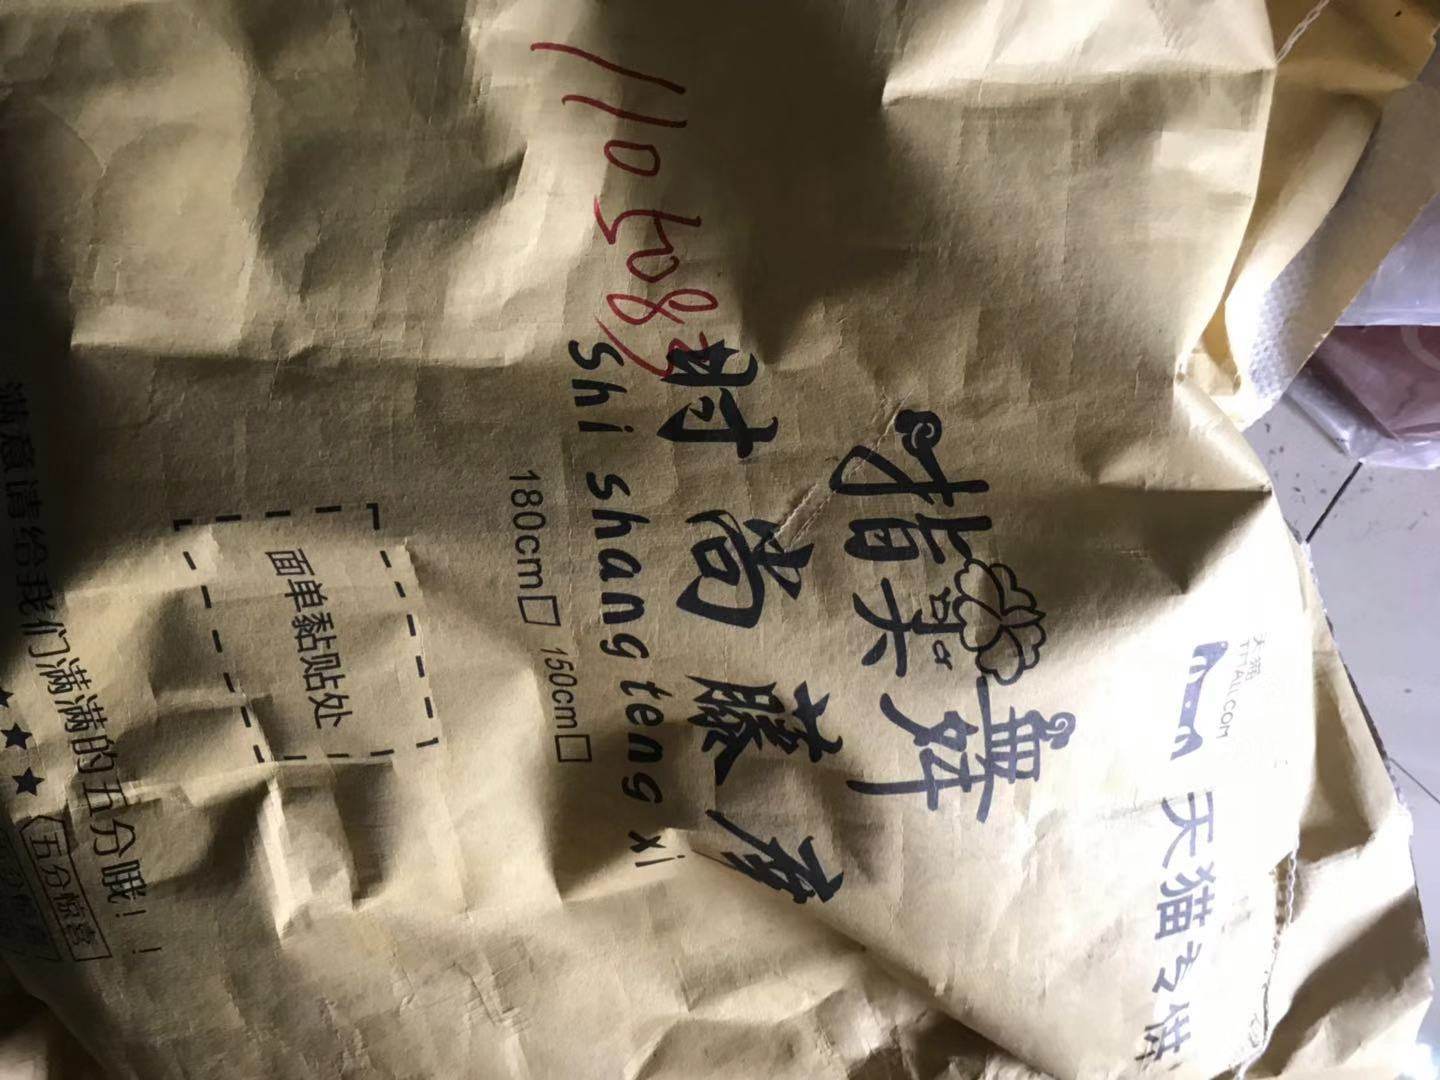 天猫
TMALL.COM
天猫专供
时尚藤席
shi shang teng xi
180cm□ 150cm□
面单黏贴处
满意请给我们满满的五分哦！！
★★
五分惊喜